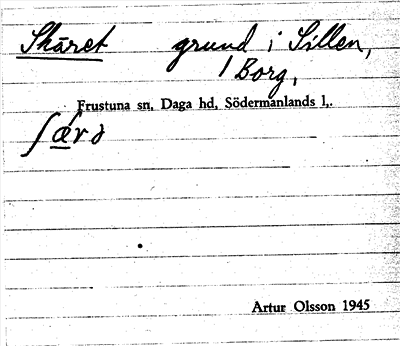 Skäret grund i Sillen,
1 Borg,
Frustuna sn, Daga hd, Södermanlands l,.
Artur Olsson 1945